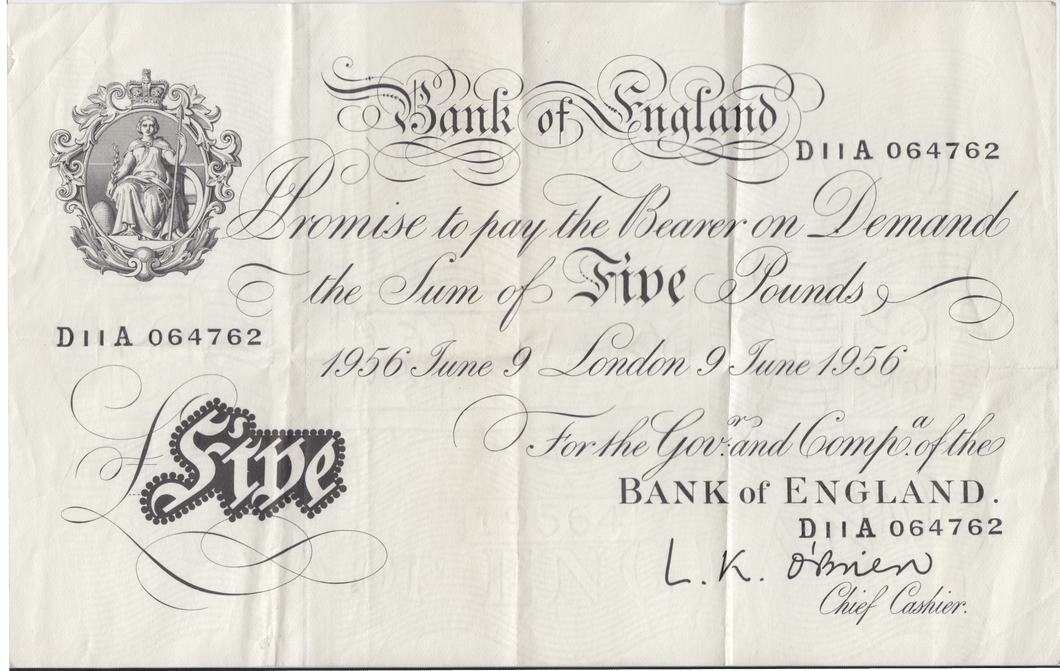 Bank of England
D11A 064762
Promise to pay the Bearer on Demand
the Sum of Five Pounds
D11A 064762
1956 June 9 London 9 June 1956
£Five
For the Govr. and Compa. of the
BANK of ENGLAND.
D11A 064762
L. K. O'Brien
Chief Cashier.